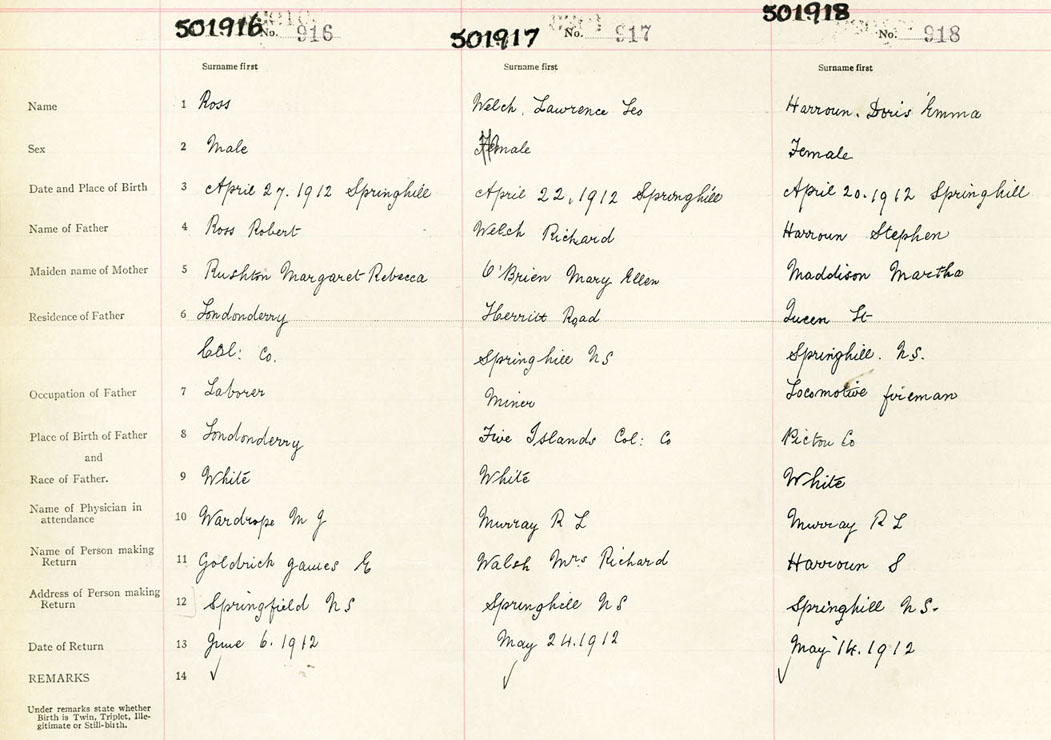 501916 No. 916
501917 No. 917
501918 No. 918
Surname first Surname first Surname first
Name 1 Ross Welch, Lawrence Leo Harroun, Doris Emma
Sex 2 Male Female Female
Date and Place of Birth 3 April 27. 1912 Springhill April 22, 1912 Springhill April 20. 1912 Springhill
Name of Father 4 Ross Robert Welch Richard Harroun Stephen
Maiden name of Mother 5 Rushton Margaret Rebecca O'Brien Mary Ellen Maddison Martha
Residence of Father 6 Londonderry Herritt Road Queen St
Col: Co. Springhill NS Springhill. N.S.
Occupation of Father 7 Laborer Miner Locomotive fireman
Place of Birth of Father 8 Londonderry Five Islands Col: Co Pictou Co
and
Race of Father. 9 White White White
Name of Physician in
attendance 10 Wardrope M J Murray R L Murray R L
Name of Person making
Return 11 Goldrich James E Walsh Mrs Richard Harroun S
Address of Person making
Return 12 Springfield NS Springhill NS Springhill N.S.
Date of Return 13 June 6. 1912 May 24. 1912 May 14. 1912
REMARKS 14 ✓ ✓ ✓
Under remarks state whether
Birth is Twin, Triplet, Ille-
gitimate or Still-birth.